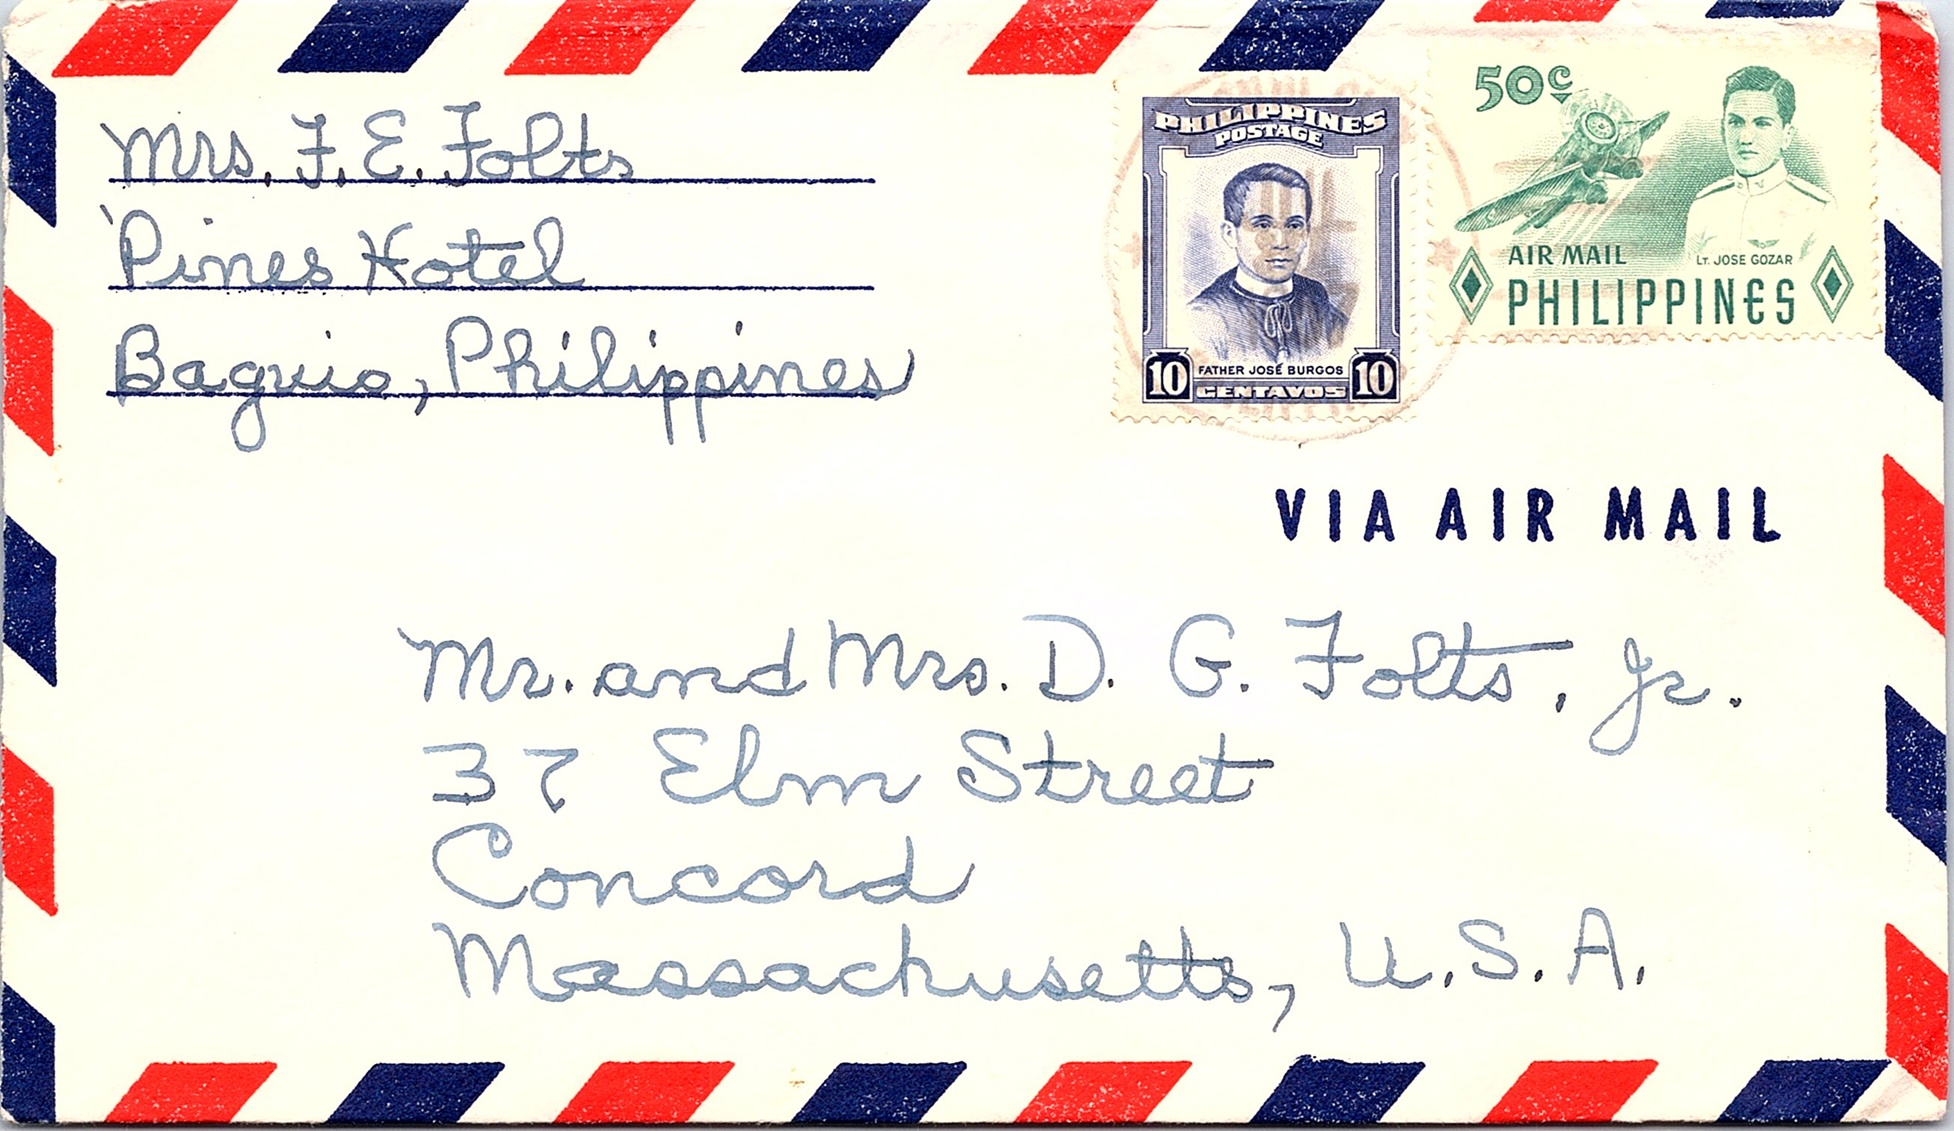 Mrs. F. E. Folts
Pines Hotel
Baguio, Philippines
PHILIPPINES
POSTAGE
10 FATHER JOSÉ BURGOS 10
CENTAVOS
50¢
AIR MAIL
LT. JOSE GOZAR
PHILIPPINES
VIA AIR MAIL
Mr. and Mrs. D. G. Folts, Jr.
37 Elm Street
Concord
Massachusetts, U.S.A.